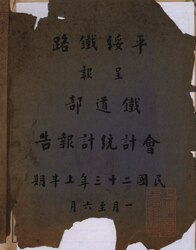 平綏鐵路
呈報
鐵道部
會計統計報告
民國二十三年上半期
一月至六月